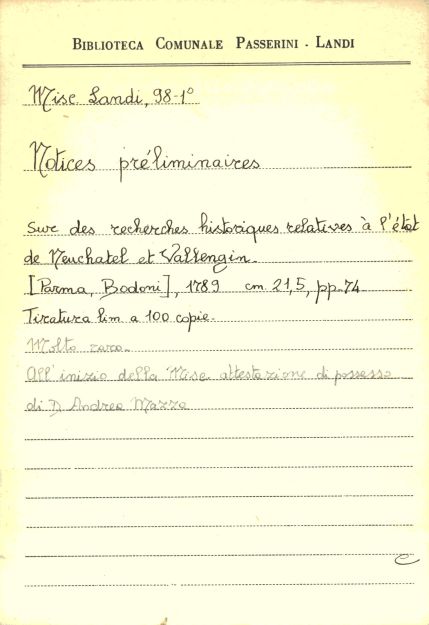 BIBLIOTECA COMUNALE PASSERINI - LANDI
Misc Landi, 98-1°
Notices préliminaires
sur des recherches historiques relatives à l'état
de Neuchatel et Vallengin.
[Parma, Bodoni], 1789 cm 21,5, pp. 74
Tiratura lim a 100 copie.
Molto raro.
All'inizio della Misc attestazione di possesso
di D Andrea Mazza
e